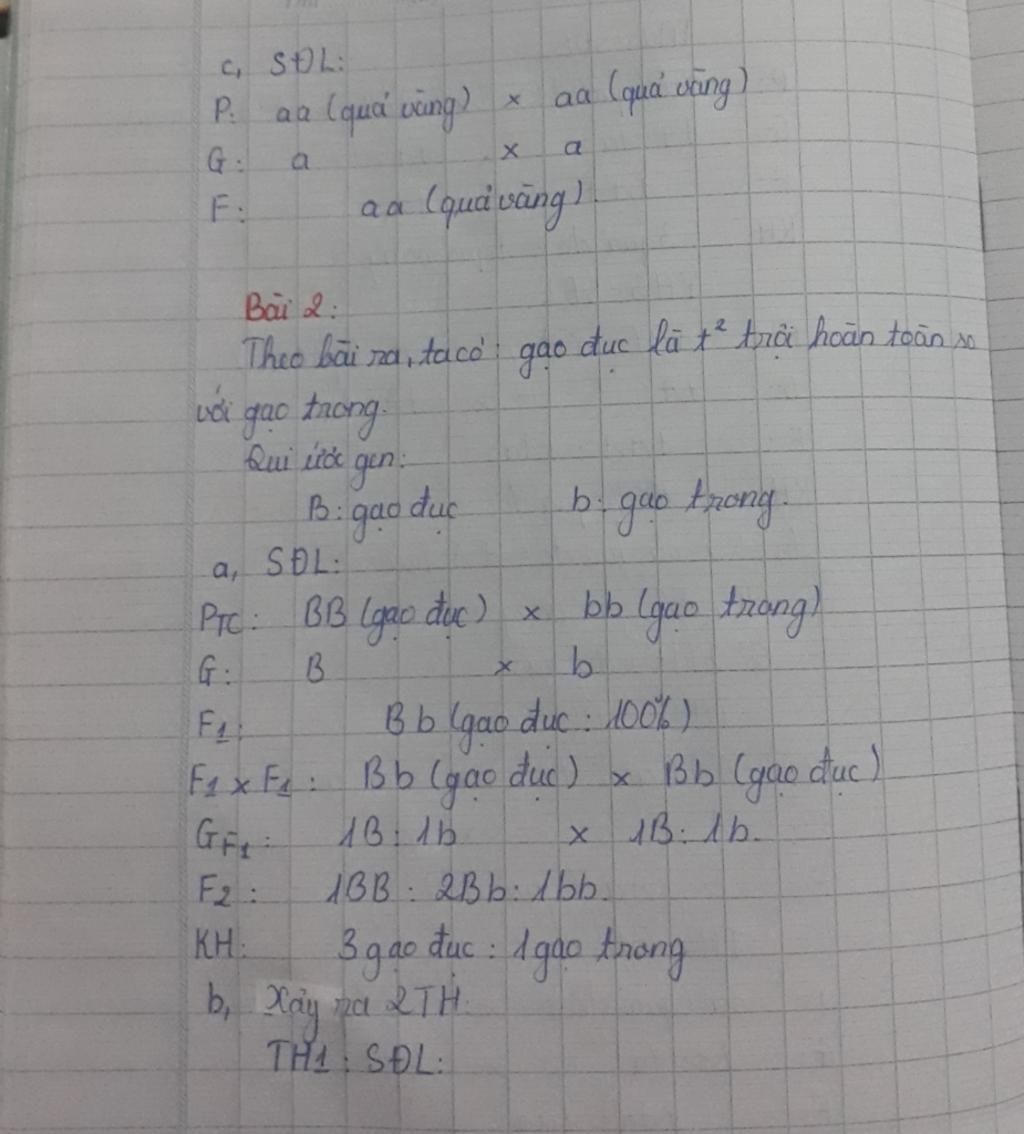 c, SĐL:
P: aa (quả vàng) x aa (quả vàng)
G: a x a
F: aa (quả vàng)
Bài 2:
Theo bài ra, ta có: gạo đục là t² trội hoàn toàn so
với gạo trong.
Qui ước gen:
B: gạo đục b: gạo trong.
a, SĐL:
PTC: BB (gạo đục) x bb (gạo trong)
G: B x b
F1: Bb (gạo đục: 100%)
F1 x F1: Bb (gạo đục) x Bb (gạo đục)
GF1: 1B: 1b x 1B: 1b.
F2: 1BB: 2Bb: 1bb.
KH: 3 gạo đục: 1 gạo trong
b, Xảy ra 2TH:
TH1: SĐL: